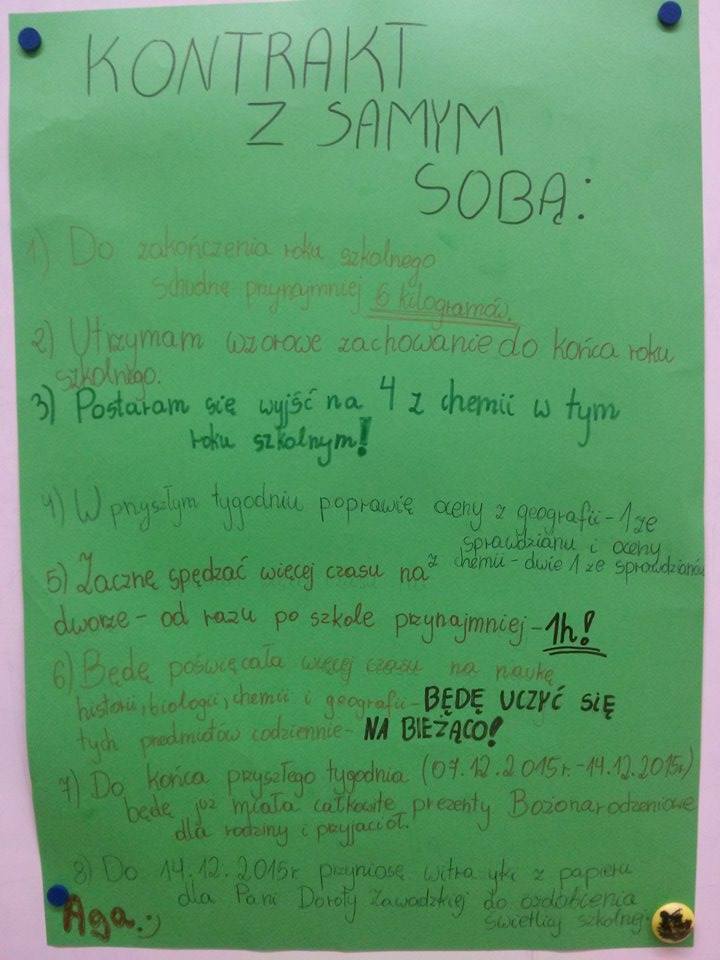 KONTRAKT
Z SAMYM
SOBĄ:
1) Do zakończenia roku szkolnego
schudnę przynajmniej 6 kilogramów.
2) Utrzymam wzorowe zachowanie do końca roku
szkolnego.
3) Postaram się wyjść na 4 z chemii w tym
roku szkolnym!
4) W przyszłym tygodniu poprawię oceny z geografii - 1 ze
sprawdzianu i oceny
z chemii - dwie 1 ze sprawdzianów
5) Zacznę spędzać więcej czasu na
dworze - od razu po szkole przynajmniej - 1h!
6) Będę poświęcała więcej czasu na naukę
historii, biologii, chemii i geografii - BĘDĘ UCZYĆ SIĘ
tych predmiotów codziennie - NA BIEŻĄCO!
7) Do końca przyszłego tygodnia (07.12.2015r. - 14.12.2015r)
będę już miała całkowite prezenty Bożonarodzeniowe
dla rodziny i przyjaciół.
8) Do 14.12.2015r przyniosę witrażyki z papieru
dla Pani Doroty Zawadzkiej do ozdobienia
świetlicy szkolnej.
Aga.;)